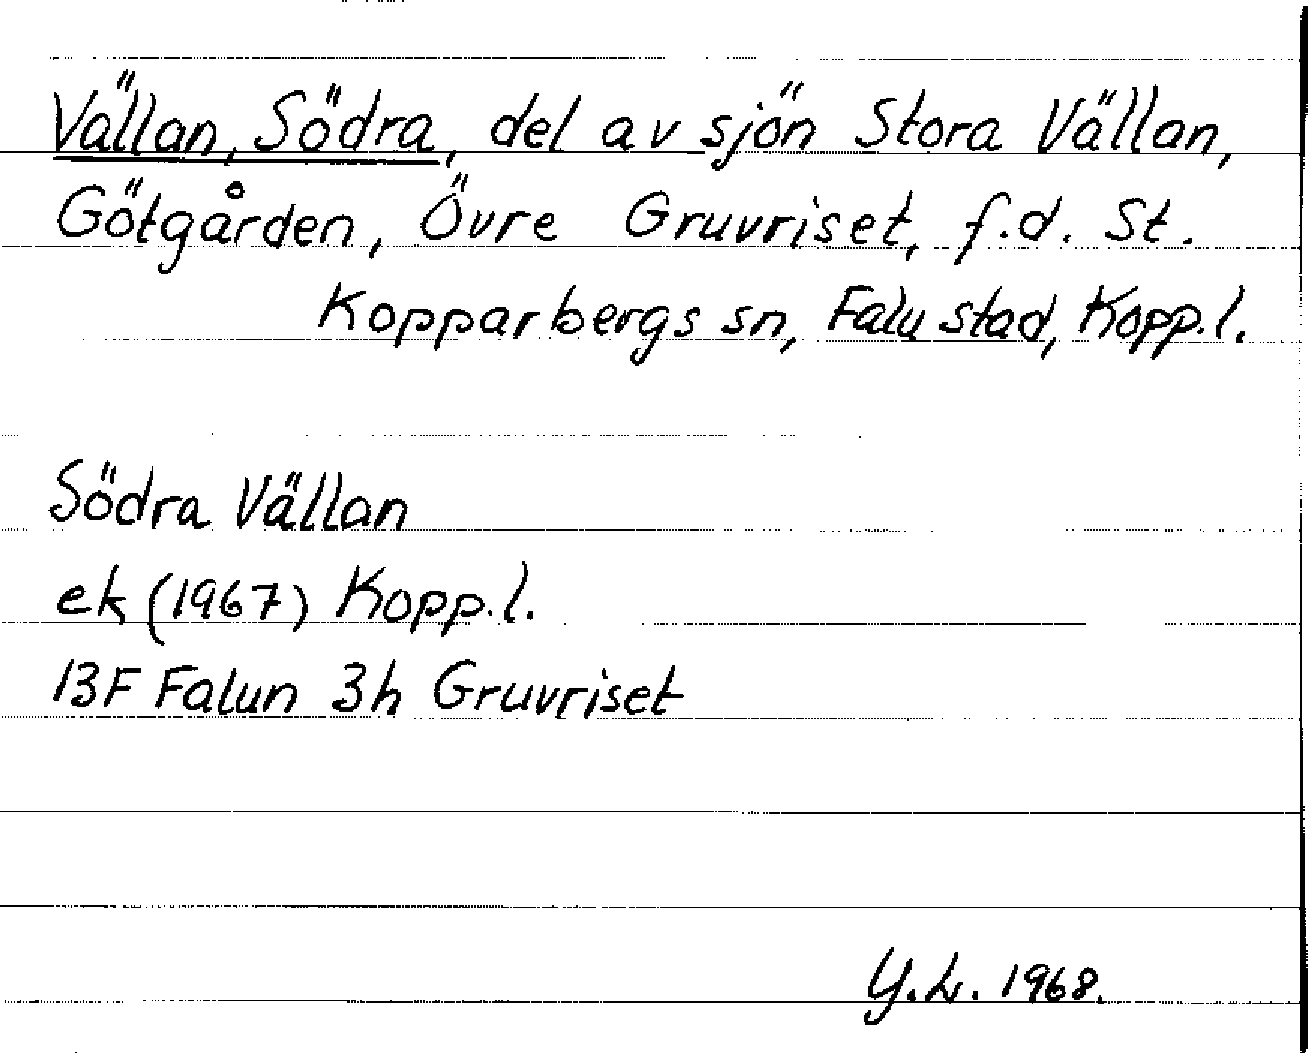 Vällan, Södra, del av sjön Stora Vällan,
Götgården, Övre Gruvriset, f.d. St.
Kopparbergs sn, Falu stad, Kopp.l.
Södra Vällan
ek (1967) Kopp.l.
13F Falun 3h Gruvriset
Y.L. 1968.